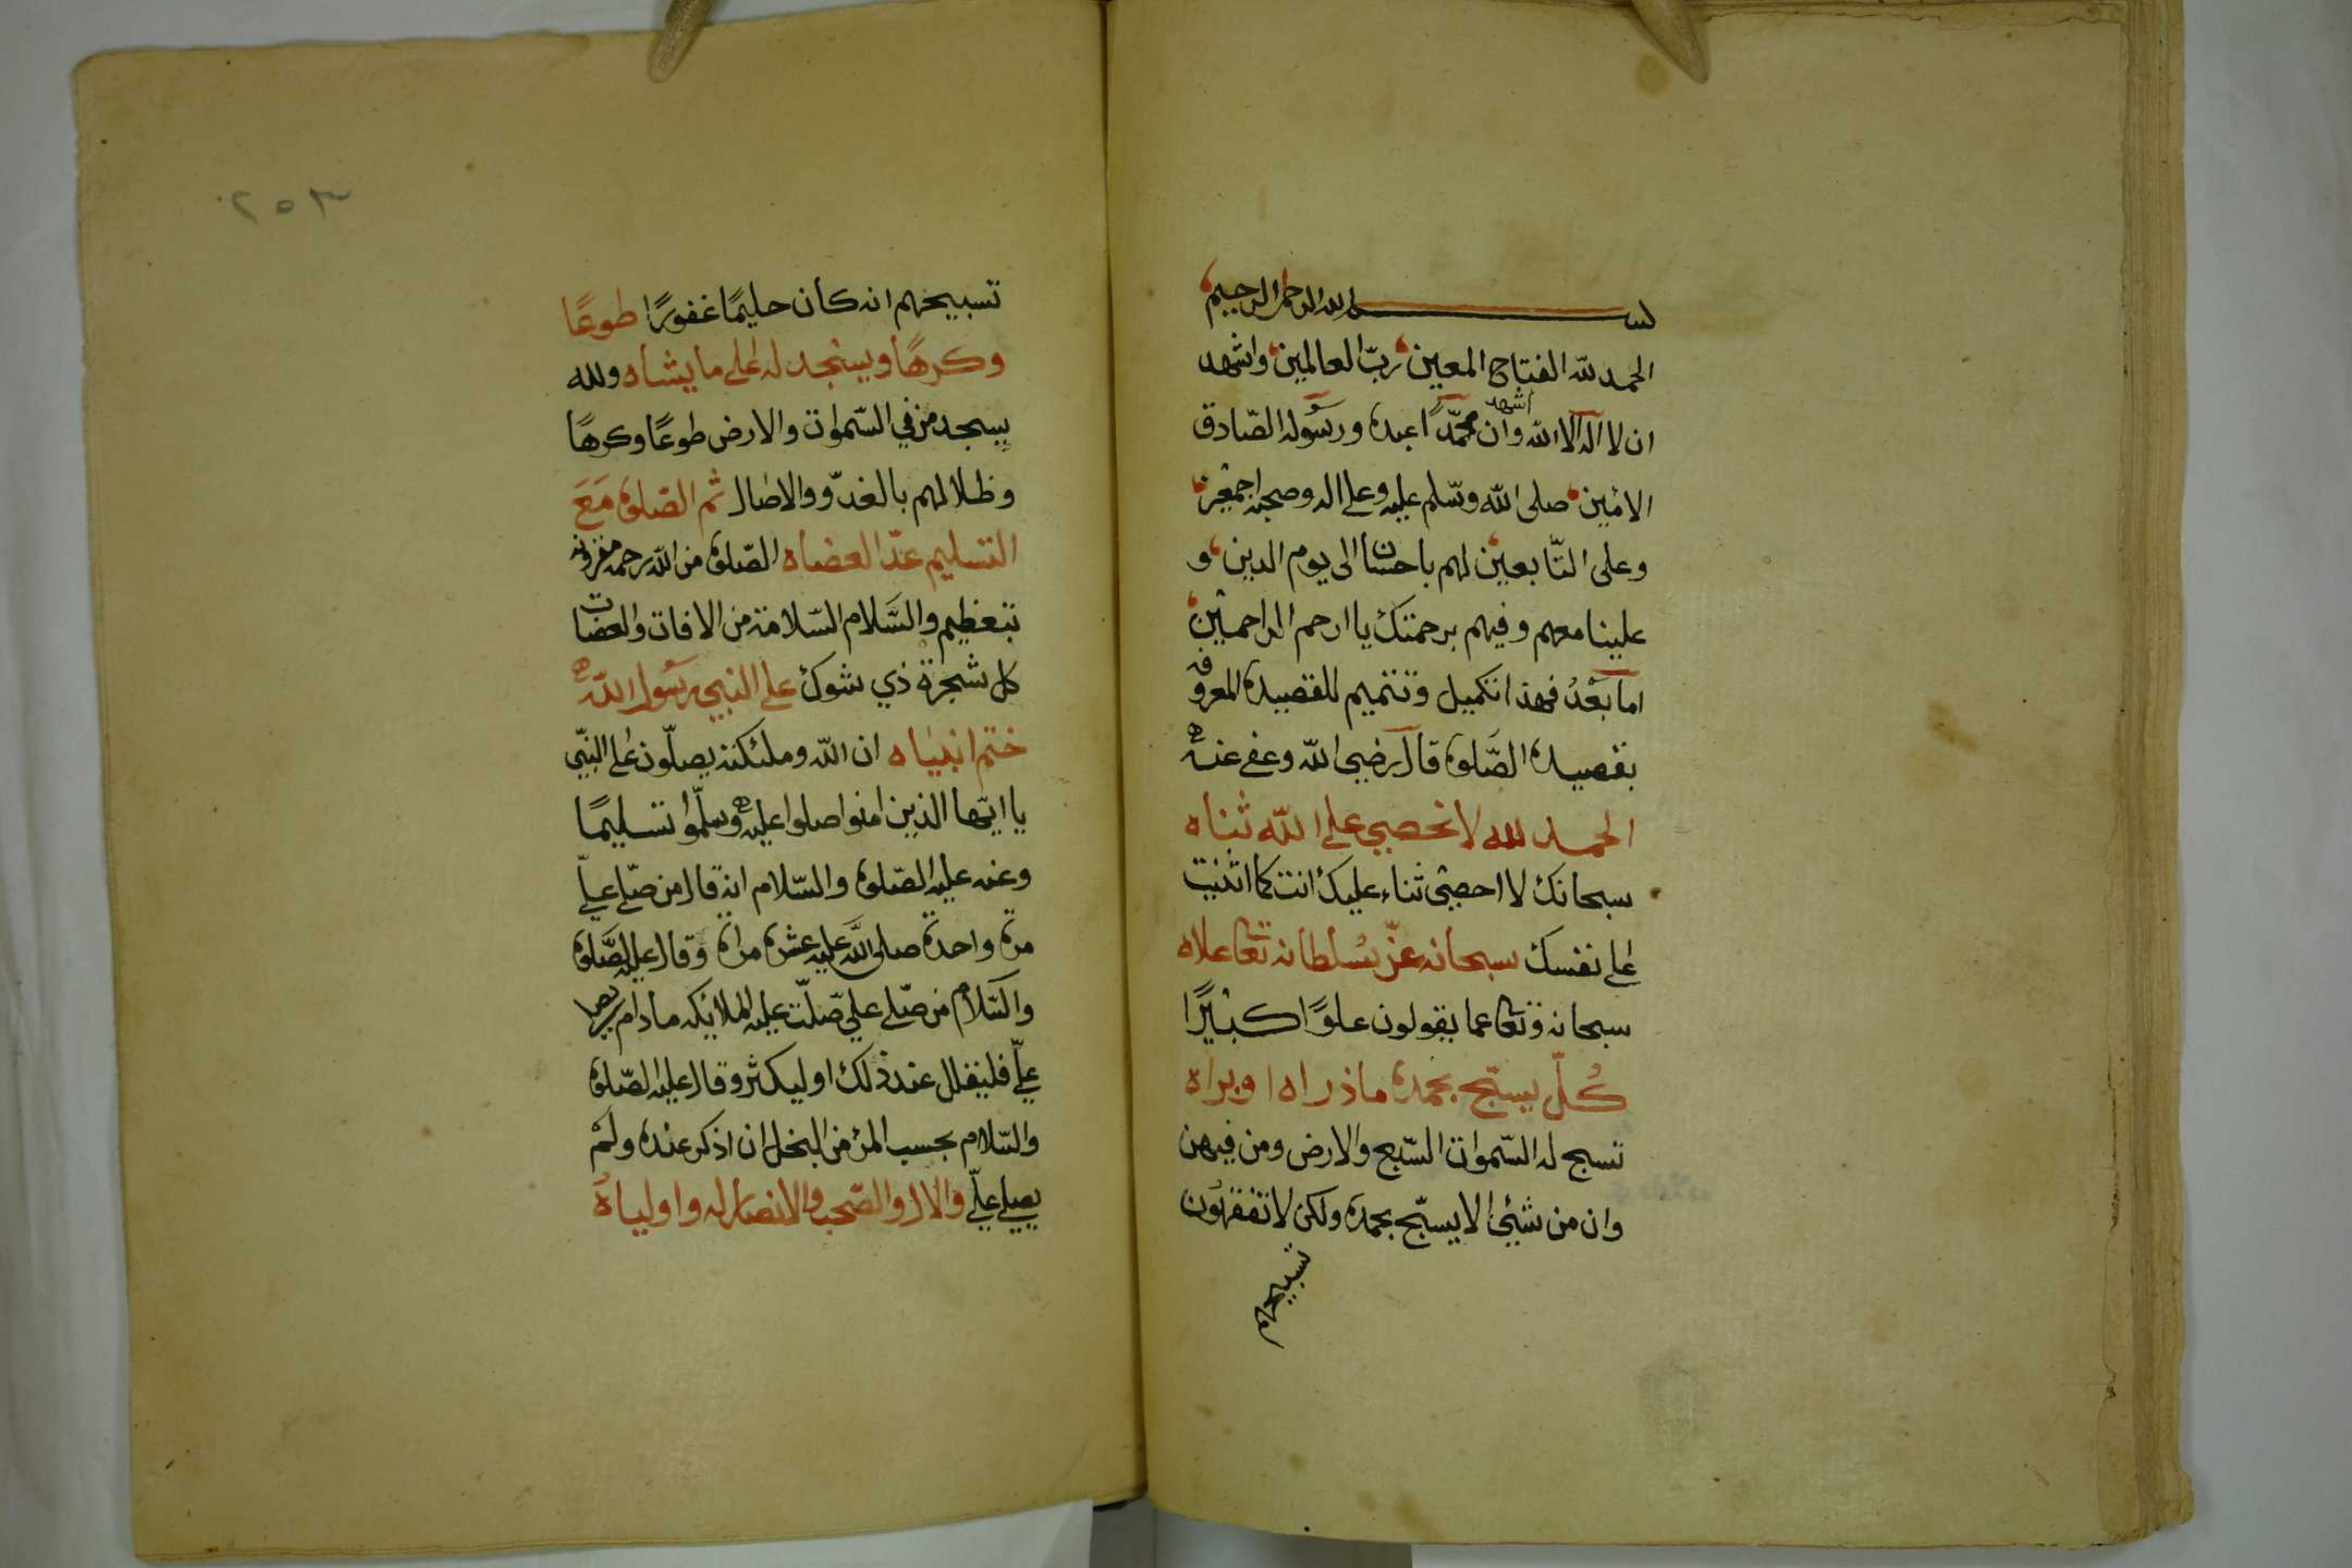 بسم الله الرحمن الرحيم
الحمد لله الفتاح المعين رب العالمين واشهد
ان لا اله الا الله وان اشهد محمدًا عبده ورسوله الصادق
الامين صلى الله وسلم عليه وعلى اله وصحبه اجمعين
وعلى التابعين لهم باحسان الى يوم الدين و
علينا معهم وفيهم برحمتك يا ارحم الراحمين
اما بعد فهذا تكميل وتتميم للقصيدة المعروفه
بقصيدة الصلوة قال رضي الله وعفي عنه
الحمد لله لا نحصي على الله ثناه
سبحانك لا احصي ثناء عليك انت كما اثنيت
على نفسك سبحانه عز بسلطانه تعا علاه
سبحانه وتعا عما يقولون علوًا كبيرًا
كلّ يسبّح بحمده ما ذراه اوبراه
تسبح له السموات السبع والارض ومن فيهن
وان من شيئ الا يسبّح بحمده ولكن لا تفقهون
تسبيحهم
٢٥٣
تسبيحهم انه كان حليمًا غفورًا طوعًا
وكرهًا ويسجد له على ما يشاه ولله
يسجد من في السموات والارض طوعًا وكرهًا
وظلالهم بالغدو والاصال ثم الصلوة مَعَ
التسليم عدّ العضاه الصلوة من الله رحمة مقرونه
بتعظيم والسَّلام السّلامة من الافات والعضات
كل شجرة ذي شوك على النبي رسول الله
ختم انبياه ان الله وملئكته يصلّون على النبي
يا ايّها الذين امنوا صلوا عليه وسلّموا تسليمًا
وعنه عليه الصلوة والسّلام انه قال من صلى عليّ
مرة واحدة صلى الله عليه عشرة مراة وقال عليه الصَّلوة
والسّلام من صلى علي صلّت عليه الملائكه مادام يصلي
عليّ فليقلل عند ذلك او ليكثر وقال عليه الصّلوة
والسّلام بحسب المرئ من البخل ان اذكر عنده ولم
يصلي عليّ والال والصّحب والانصار له واولياهُ